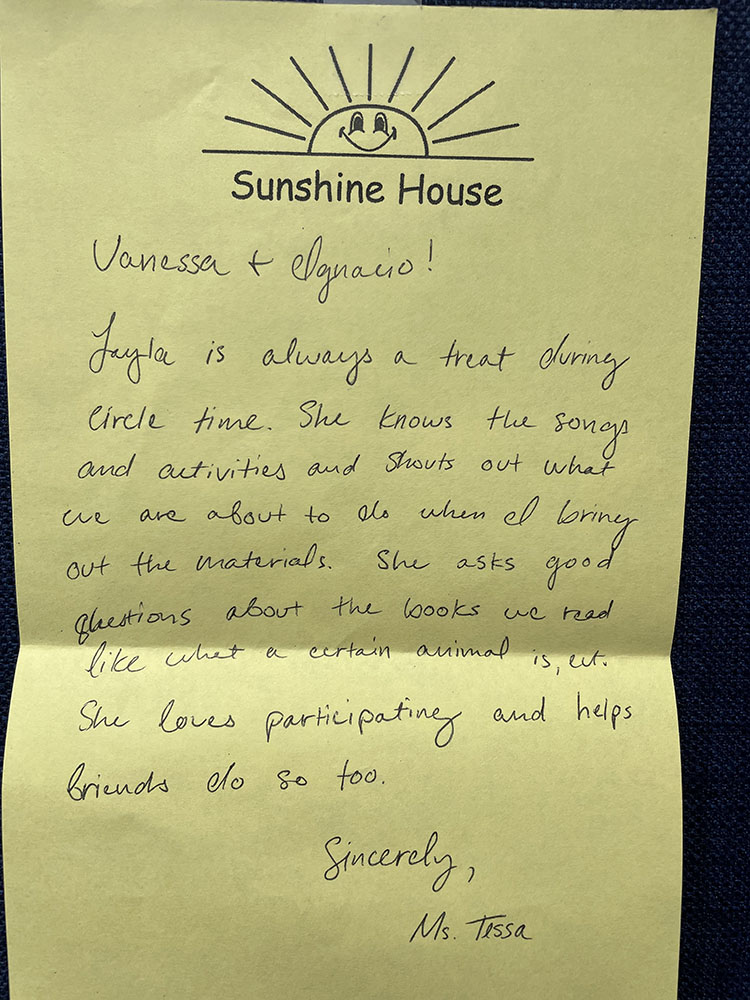 Sunshine House
Vanessa + Ignacio!
Jayla is always a treat during
circle time. She knows the songs
and activities and shouts out what
we are about to do when I bring
out the materials. She asks good
questions about the books we read
like what a certain animal is, ect.
She loves participating and helps
friends do so too.
Sincerely,
Ms. Tessa